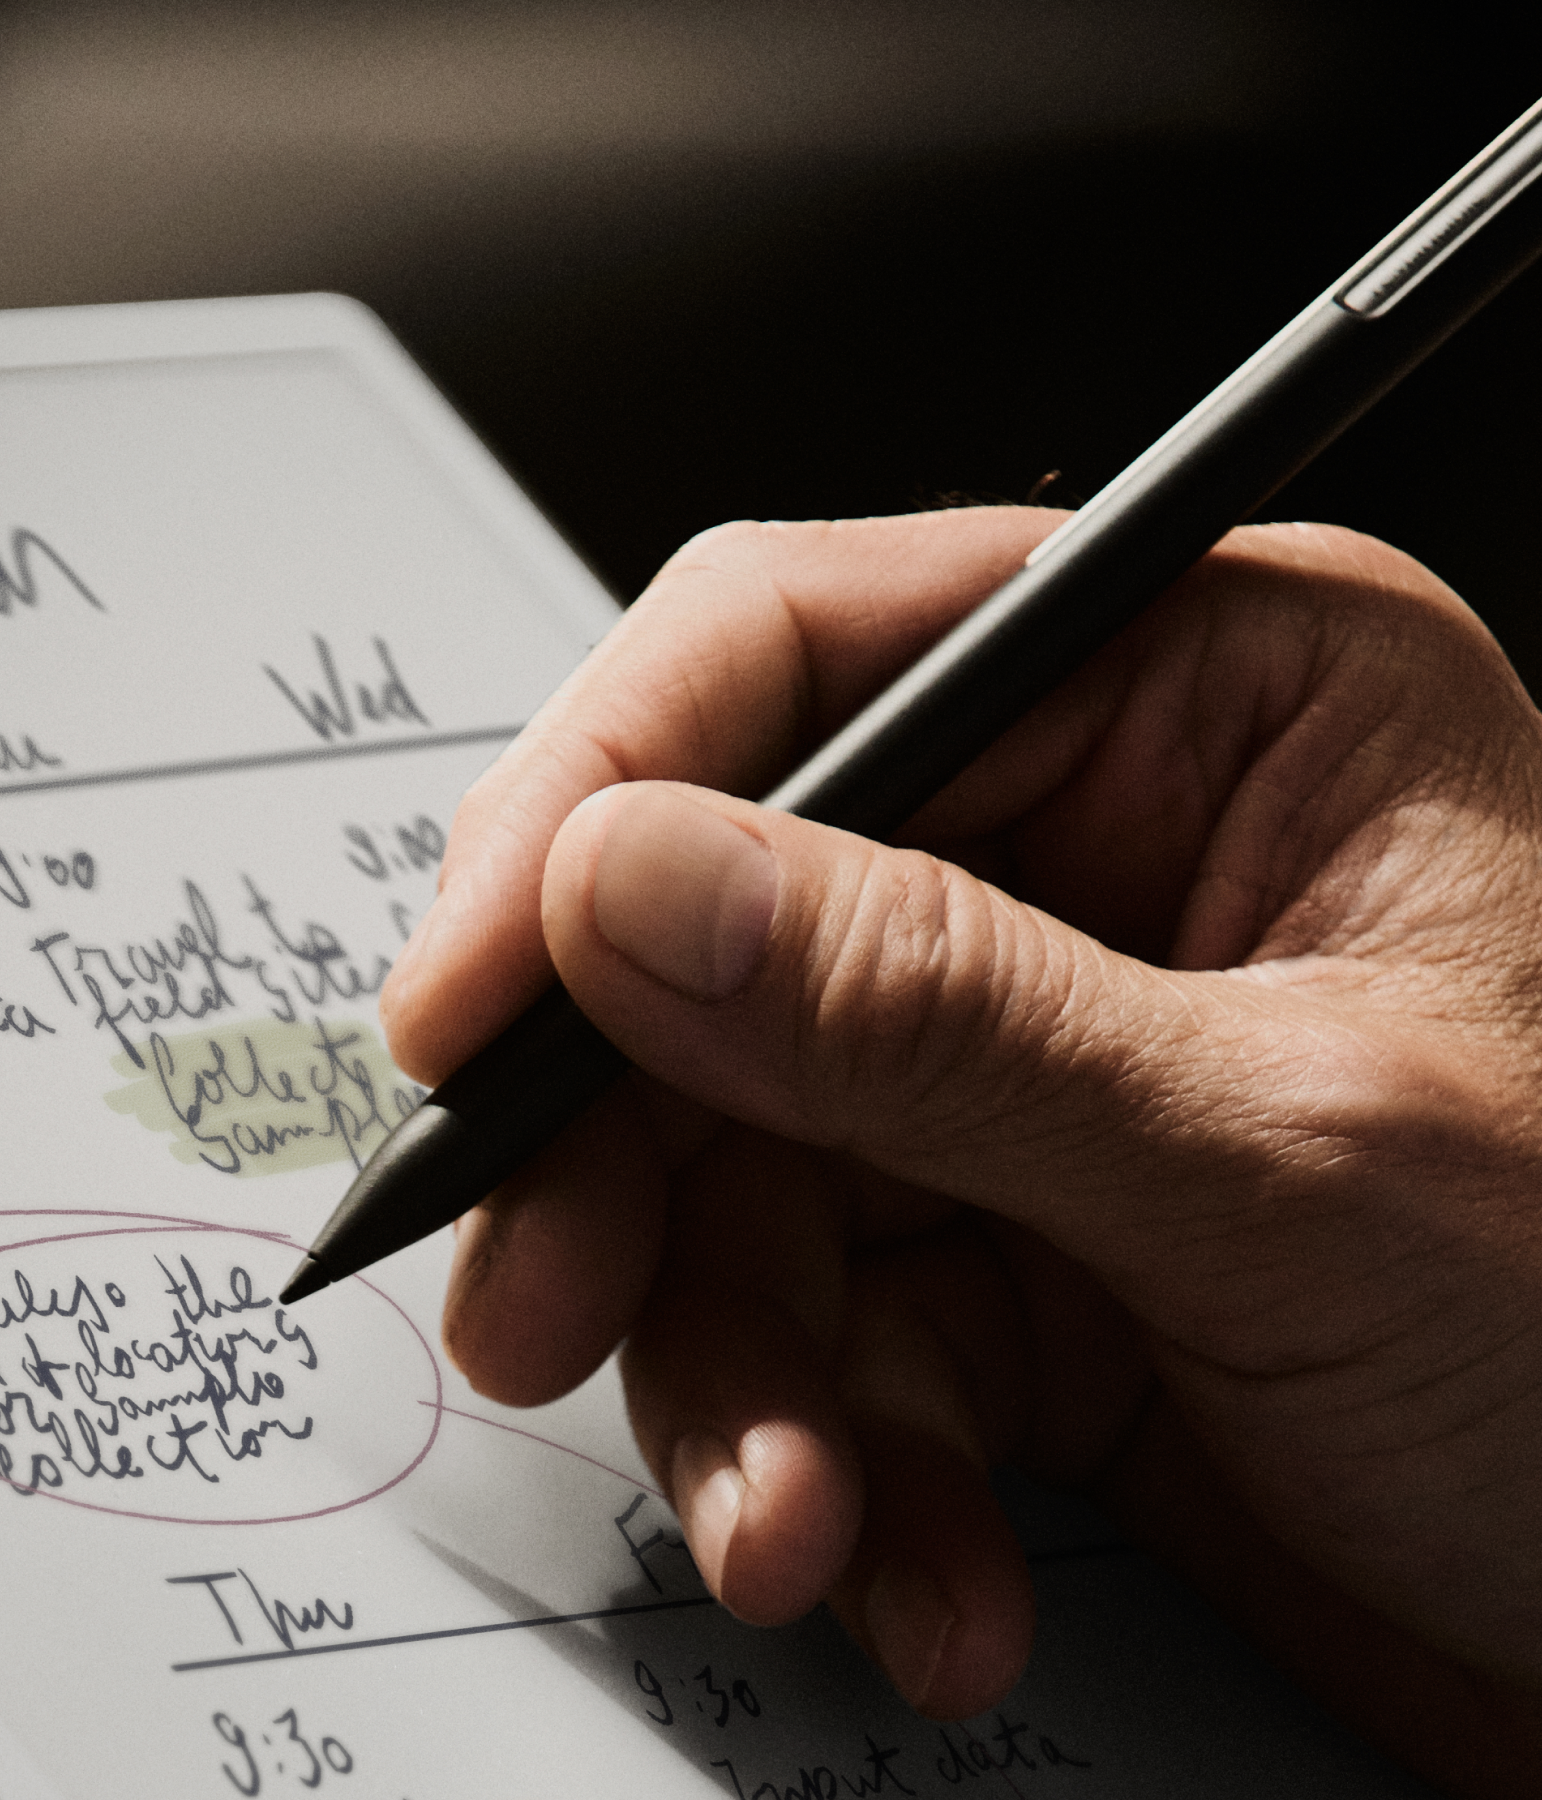 Wed
9:00
9:00
Travel to
field sites
Collect
Sampl
the
locations
Sample
collection
Thu
9:30
9:30
Input data